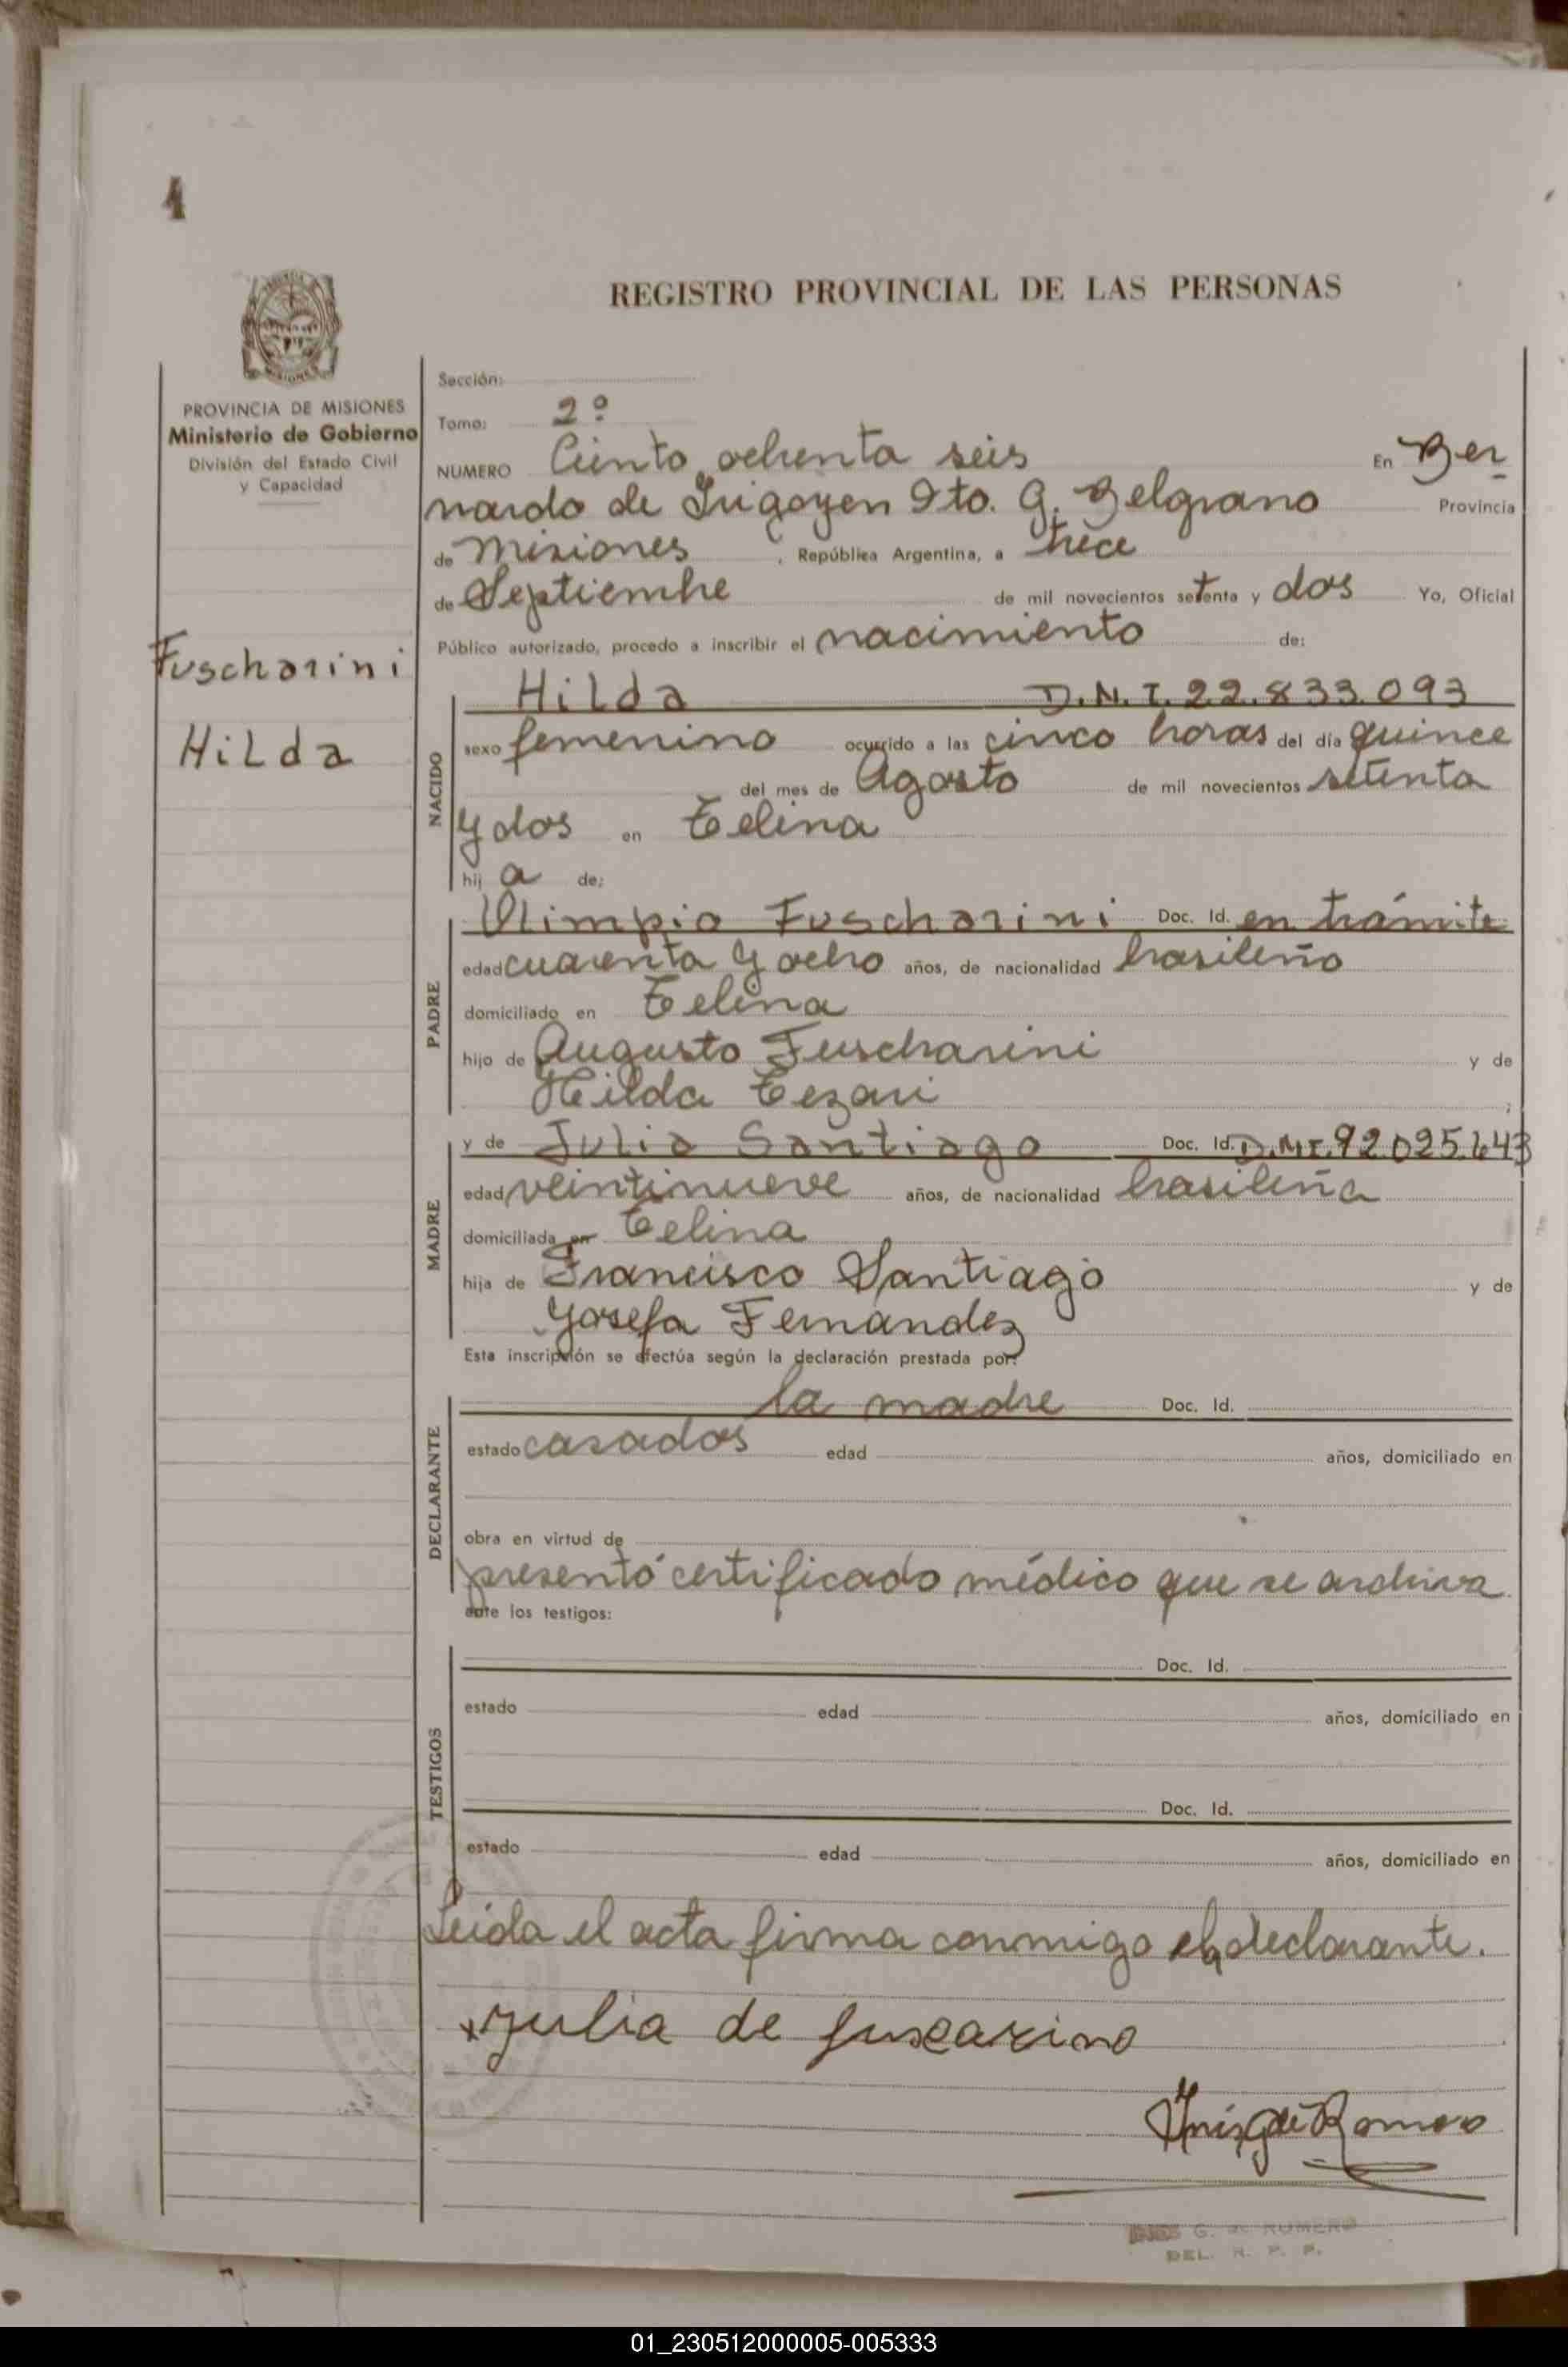 1
REGISTRO PROVINCIAL DE LAS PERSONAS
PROVINCIA DE MISIONES
Ministerio de Gobierno
División del Estado Civil
y Capacidad
Fuscharini
Hilda
Sección:
Tomo: 2º
NUMERO Ciento ochenta seis En Ber
nardo de Irigoyen Dto. G. Belgrano Provincia
de Misiones, República Argentina, a trece
de Septiembre de mil novecientos setenta y dos Yo, Oficial
Público autorizado, procedo a inscribir el nacimiento de:
NACIDO
Hilda D.N.I. 22.833.093
sexo femenino ocurrido a las cinco horas del día quince
del mes de Agosto de mil novecientos setenta
y dos en Celina
hij a de:
PADRE
Olimpio Fuscharini Doc. Id. en trámite
edad cuarenta y ocho años, de nacionalidad brasileño
domiciliado en Celina
hijo de Augusto Fuscharini y de
Hilda Cezari ;
MADRE
y de Julia Santiago Doc. Id. D.N.I. 92.025.643
edad veintinueve años, de nacionalidad brasileña
domiciliada en Celina
hija de Francisco Santiago y de
Josefa Fernandez
Esta inscripción se efectúa según la declaración prestada por:
DECLARANTE
la madre Doc. Id.
estado casados edad años, domiciliado en
obra en virtud de
presentó certificado médico que se archiva
ante los testigos:
TESTIGOS
Doc. Id.
estado edad años, domiciliado en
Doc. Id.
estado edad años, domiciliado en
Leída el acta firma conmigo el declarante.
x Julia de fuscarino
Inés G. de Romero
G. de ROMERO
DEL. R. P. P.
01_230512000005-005333